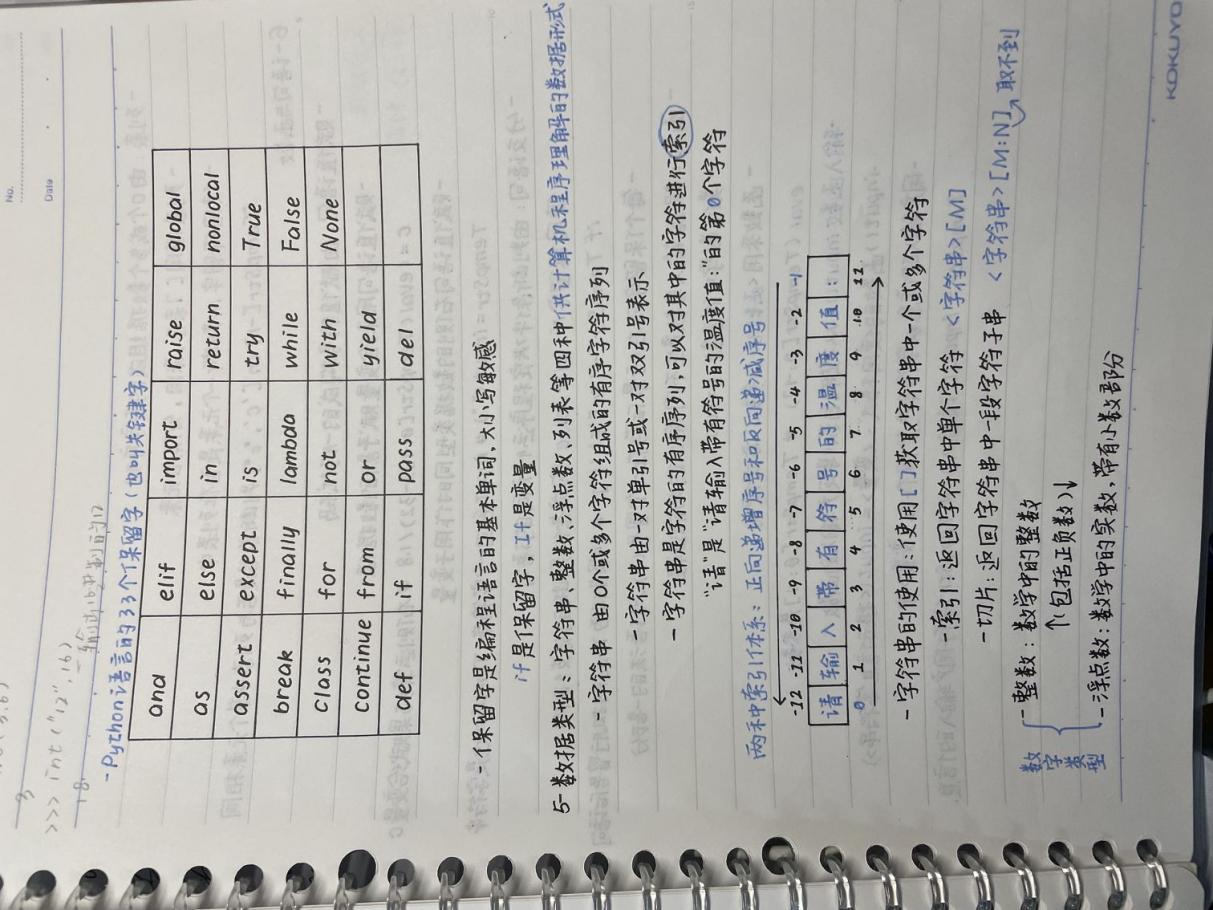 No.
Date
3
>>> int("12",16)
18
-Python语言的33个保留字(也叫关键字)
and elif import raise global
as else in return nonlocal
assert except is try True
break finally lambda while False
class for not with None
continue from or yield
def if pass del
-保留字是编程语言的基本单词,大小写敏感
if是保留字,If是变量
5-数据类型:字符串、整数、浮点数、列表等四种供计算机程序理解的数据形式
-字符串 由0个或多个字符组成的有序字符序列
-字符串由一对单引号或一对双引号表示
-字符串是字符的有序序列,可以对其中的字符进行索引
"请"是"请输入带有符号的温度值:"的第0个字符
两种索引体系:正向递增序号和反向递减序号
-12 -11 -10 -9 -8 -7 -6 -5 -4 -3 -2 -1
请 输 入 带 有 符 号 的 温 度 值 :
0 1 2 3 4 5 6 7 8 9 10 11
-字符串的使用:使用[]获取字符串中一个或多个字符
-索引:返回字符串中单个字符 <字符串>[M]
-切片:返回字符串中一段字符子串 <字符串>[M:N] 取不到
数字类型
-整数:数学中的整数
(包括正负数)
-浮点数:数学中的实数,带有小数部份
KOKUYO